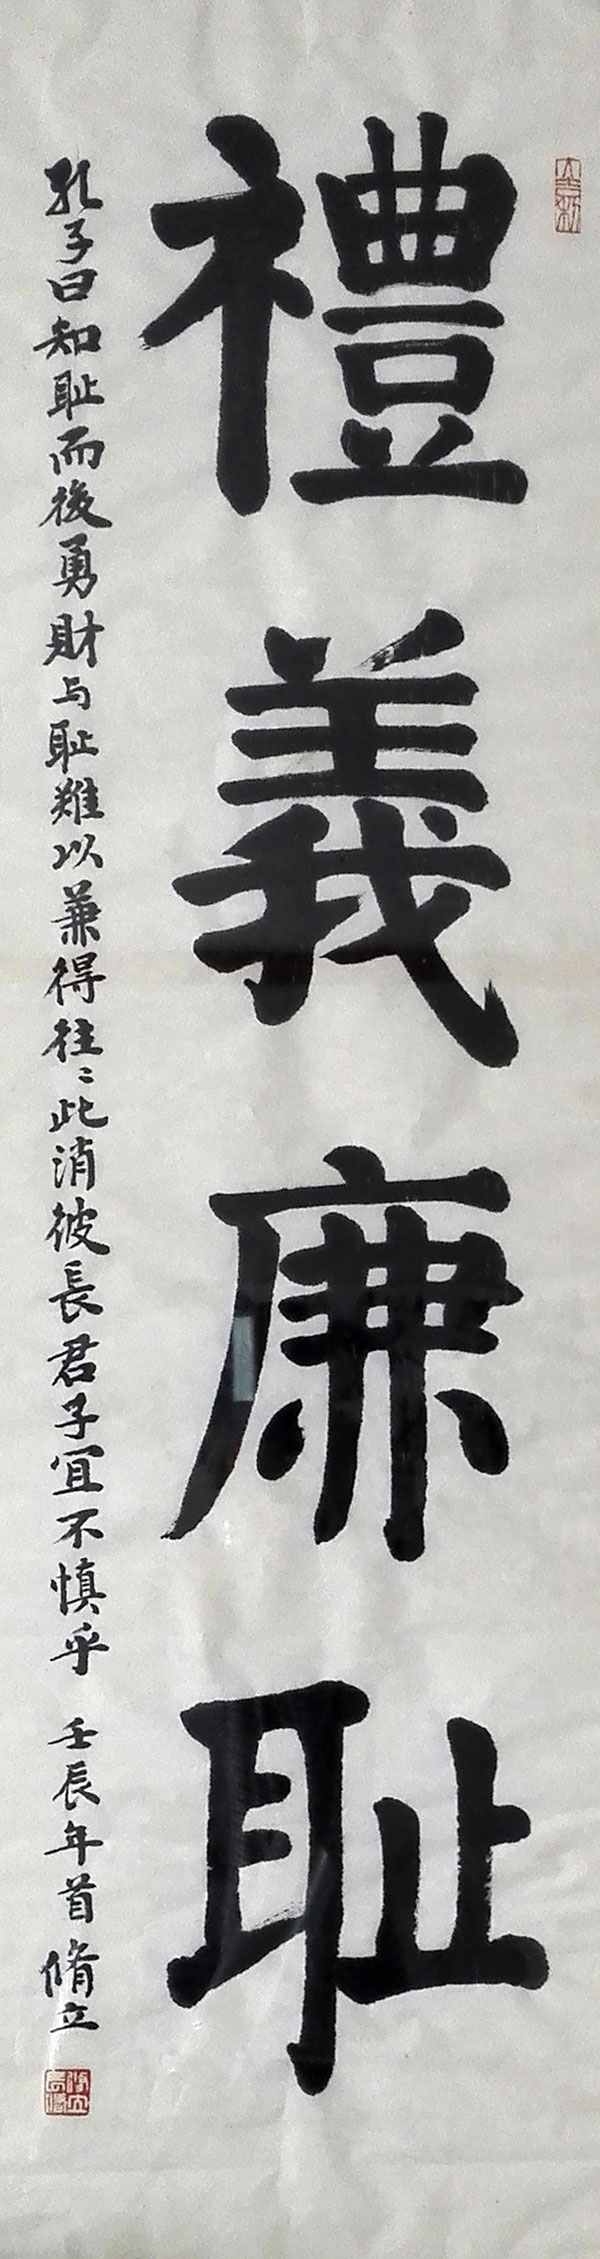 禮義廉耻
孔子曰知耻而後勇財与耻難以兼得往〻此消彼長君子宜不慎乎 壬辰年首脩立